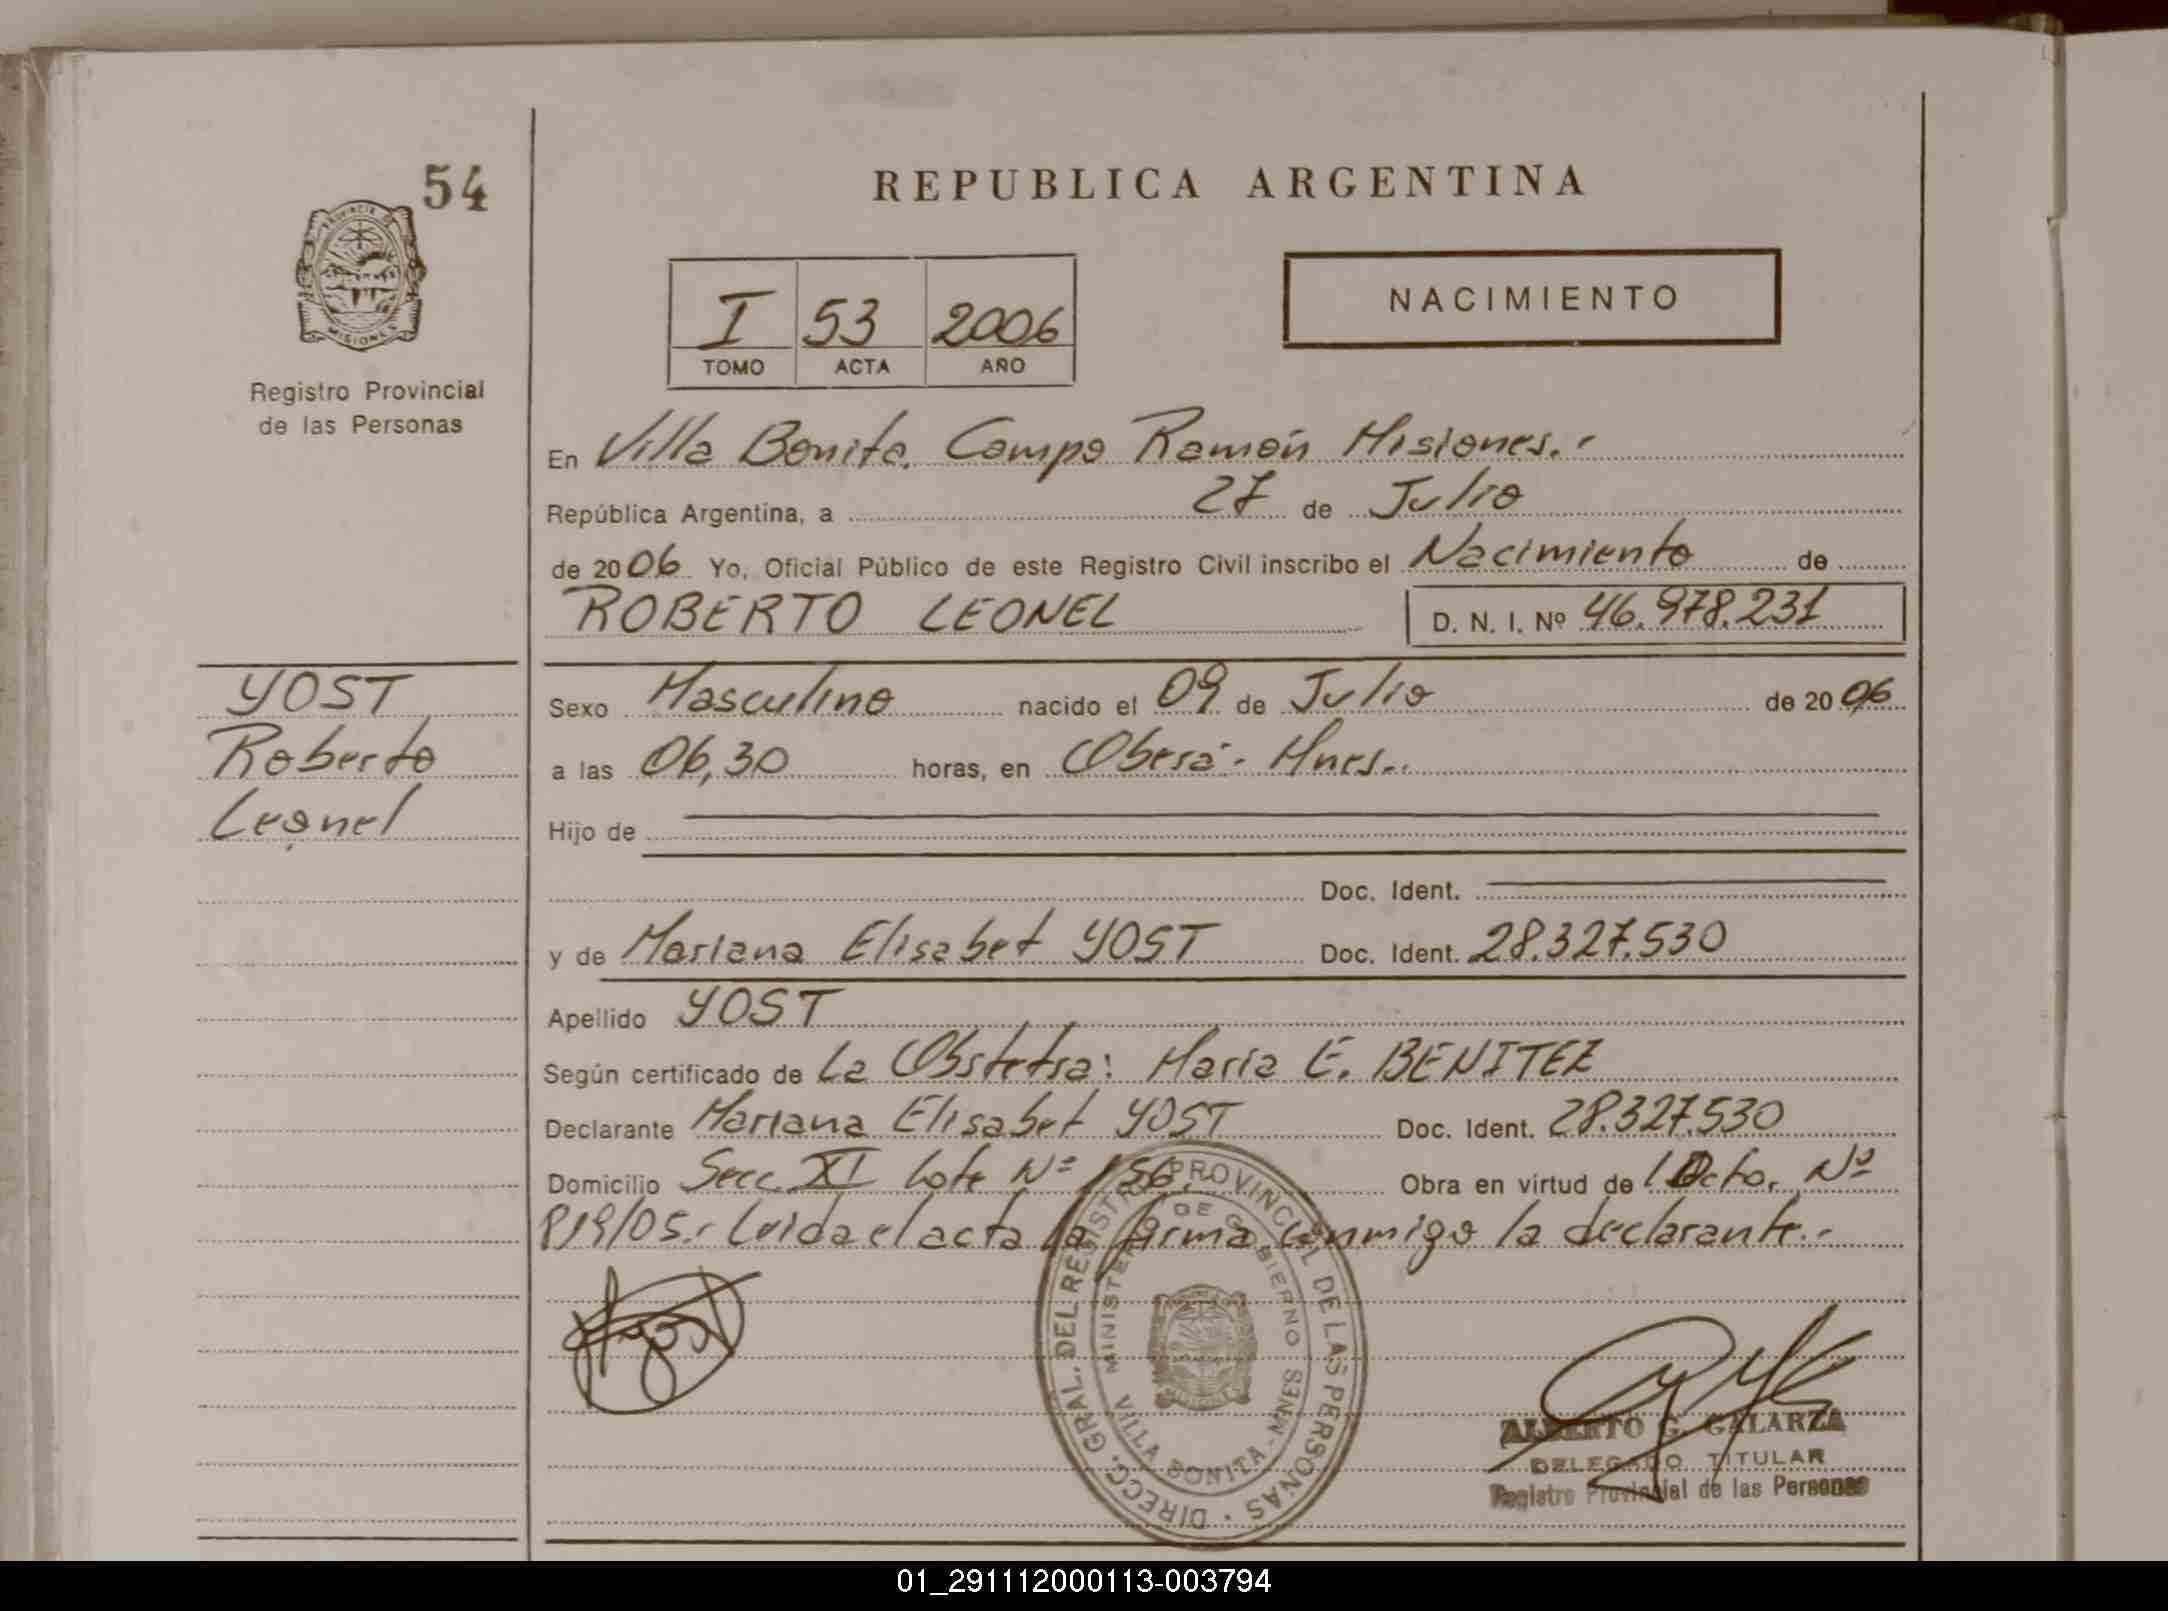 54
REPUBLICA ARGENTINA
PROVINCIA DE
MISIONES
I 53 2006
TOMO ACTA AÑO
NACIMIENTO
Registro Provincial
de las Personas
En Villa Bonita. Campo Ramón Misiones.-
República Argentina, a 27 de Julio
de 2006 Yo, Oficial Público de este Registro Civil inscribo el Nacimiento de
ROBERTO LEONEL D. N. I. Nº 46.978.231
YOST
Roberto
Leonel
Sexo Masculino nacido el 09 de Julio de 2006
a las 06,30 horas, en Oberá - Mnes.-
Hijo de
Doc. Ident.
y de Mariana Elisabet YOST Doc. Ident. 28.327.530
Apellido YOST
Según certificado de La Obstetra: María E. BENITEZ
Declarante Mariana Elisabet YOST Doc. Ident. 28.327.530
Domicilio Secc. XI Lote Nº 156. Obra en virtud de Dcto. Nº
819/05.- Leida el acta la firma conmigo la declarante.-
DIRECC. GRAL. DEL REGISTRO PROVINCIAL DE LAS PERSONAS
MINISTERIO DE GOBIERNO
VILLA BONITA - MNES
ALBERTO G. GALARZA
DELEGADO TITULAR
Registro Provincial de las Personas
01_291112000113-003794